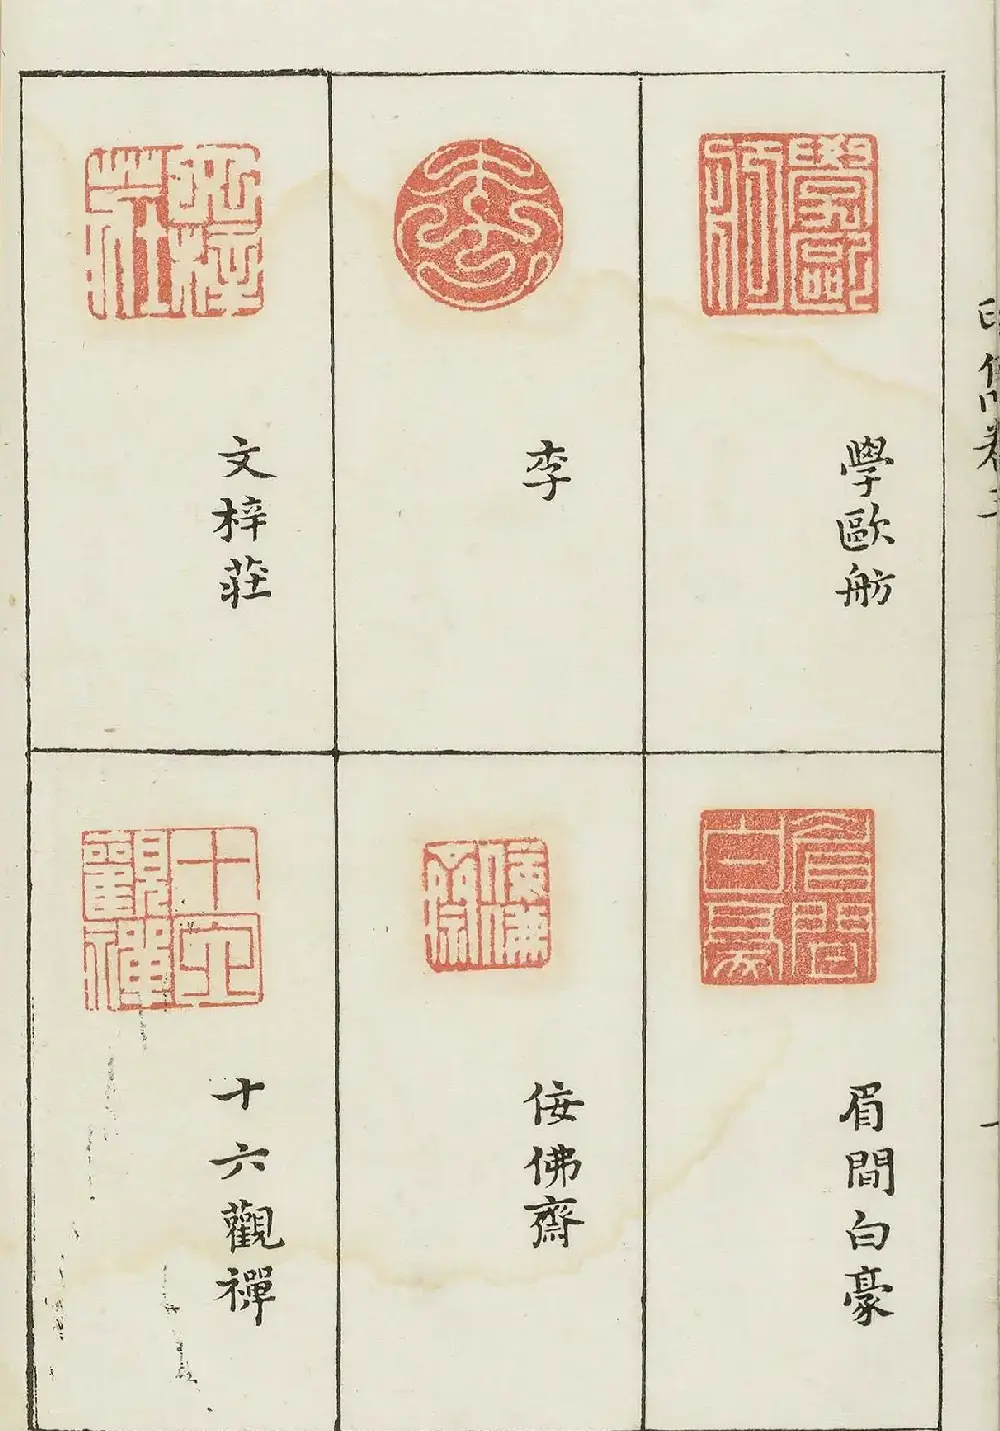 學歐舫
李
文梓莊
眉間白豪
佞佛齋
十六觀禪